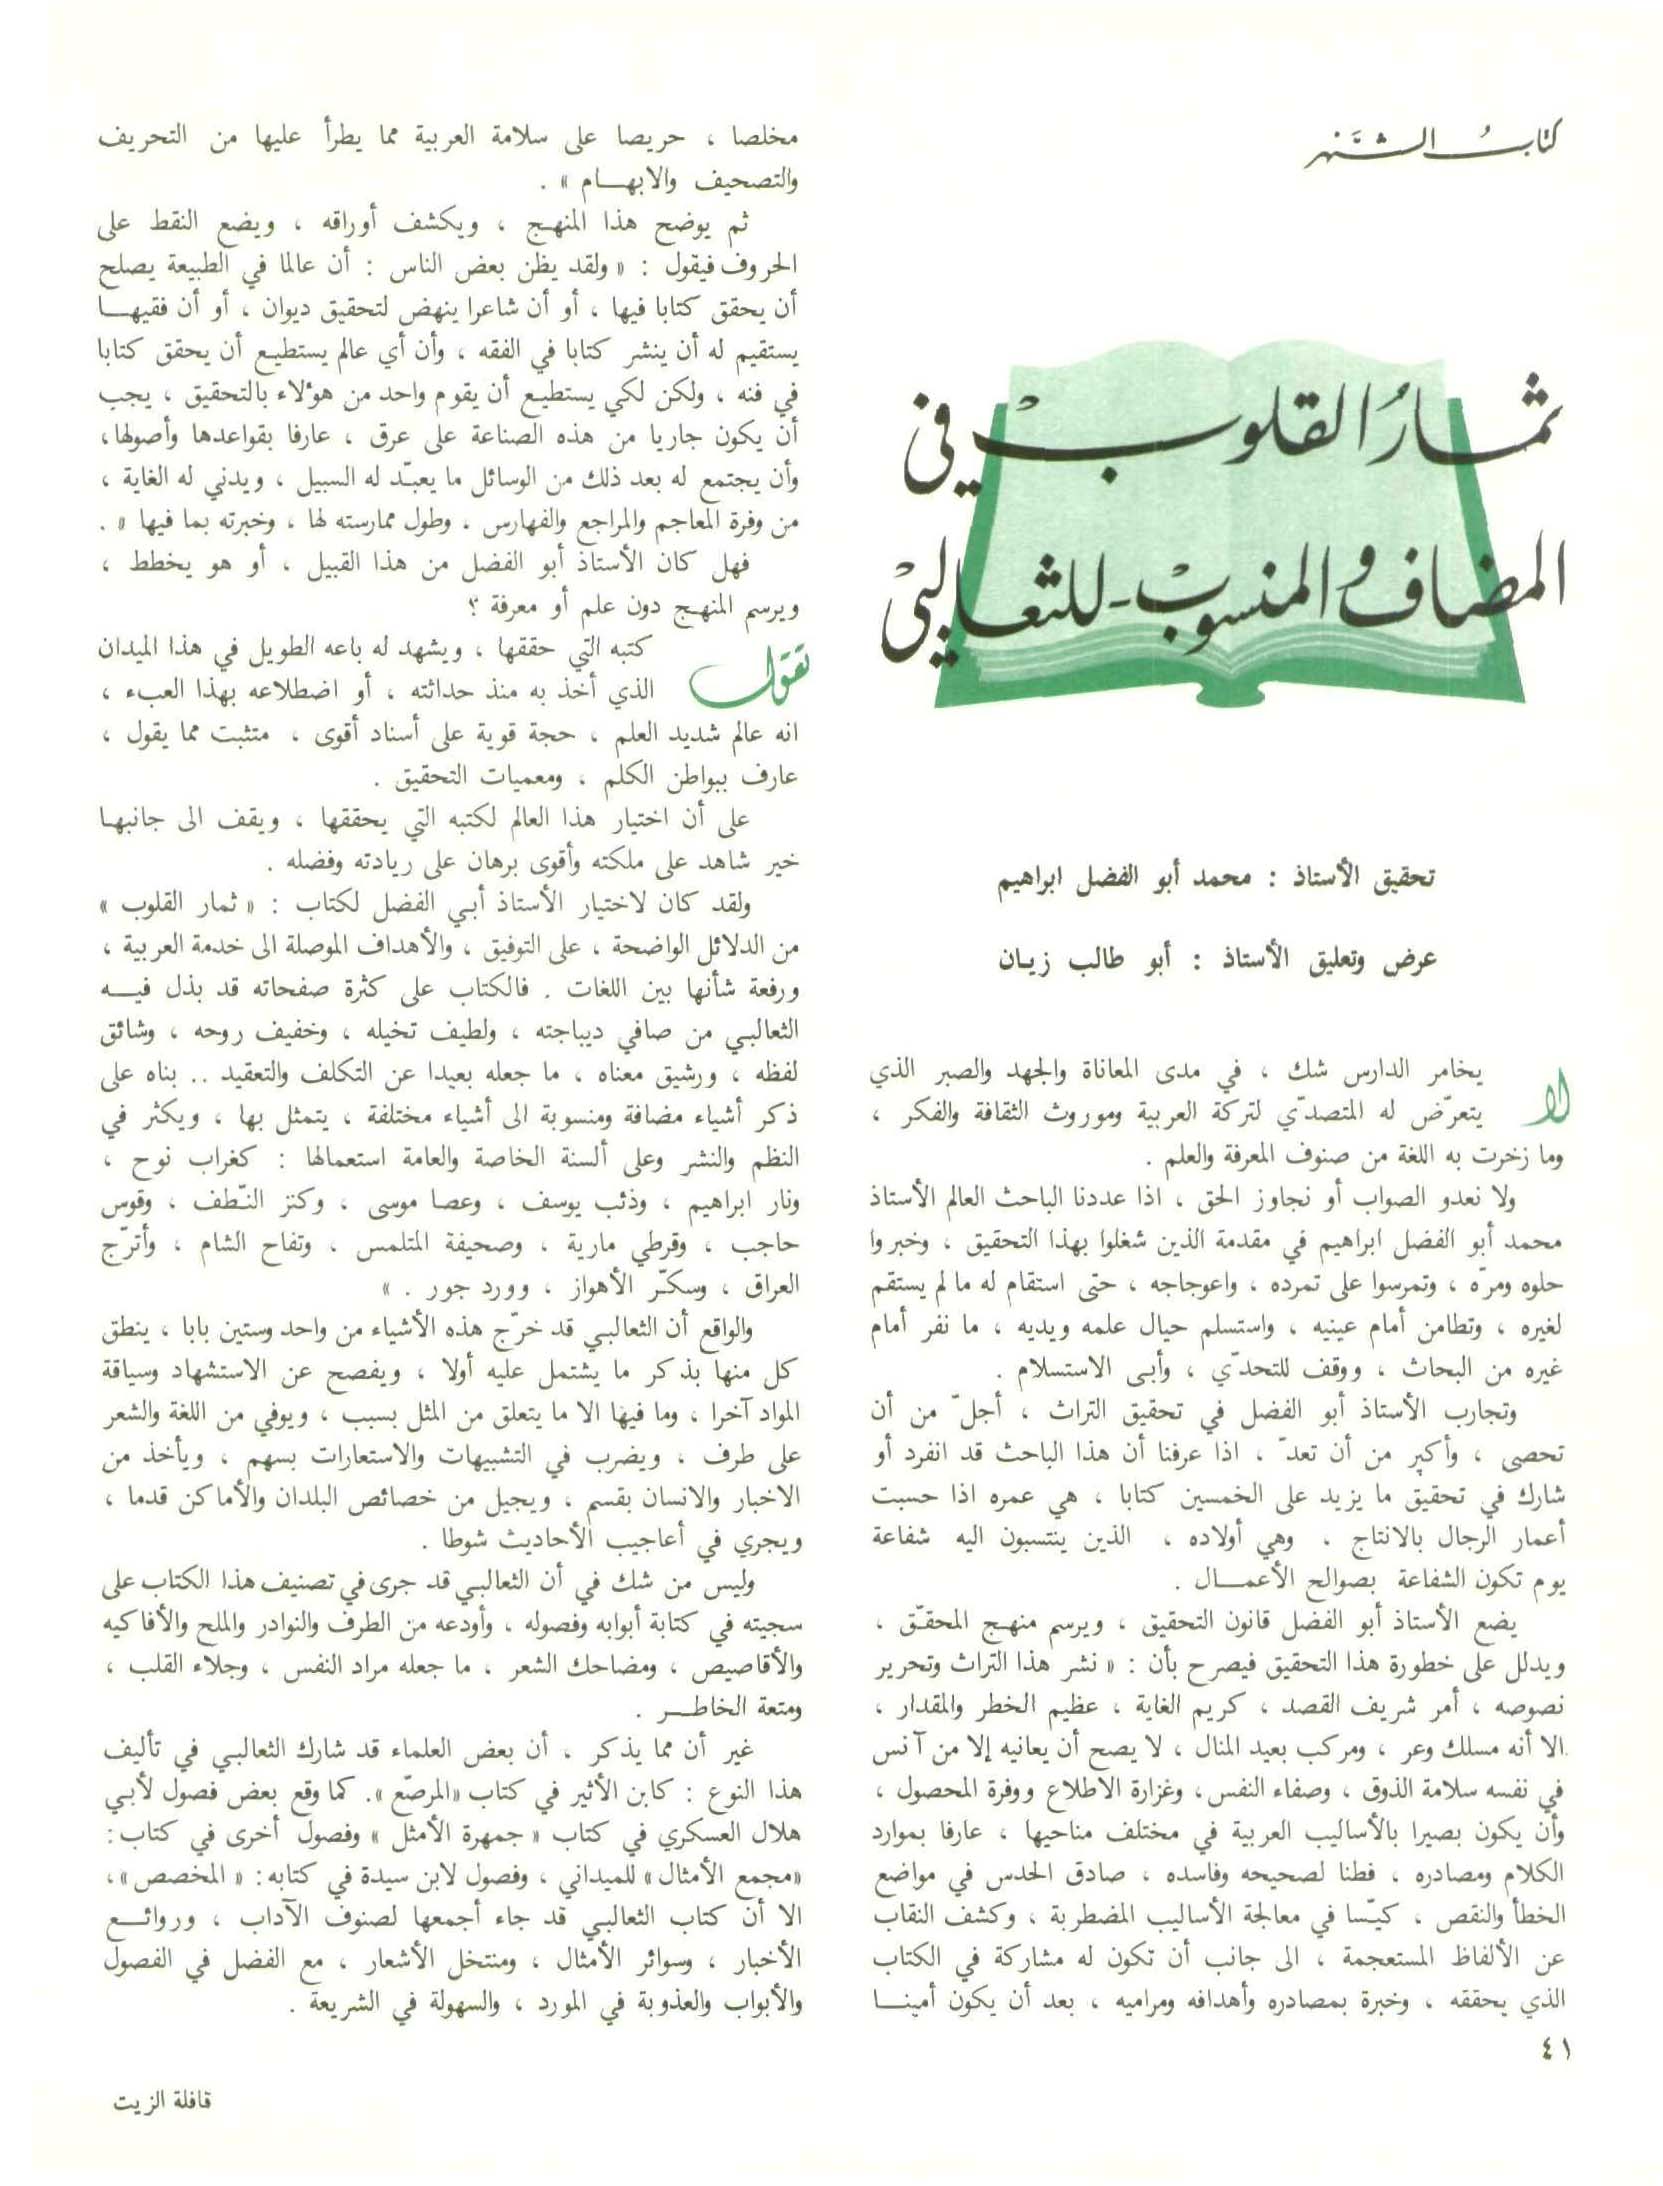 كتاب الشهر
ثمار القلوب في
المضاف والمنسوب - للثعالبي
تحقيق الأستاذ : محمد أبو الفضل ابراهيم
عرض وتعليق الأستاذ : أبو طالب زيان
لا يخامر الدارس شك ، في مدى المعاناة والجهد والصبر الذي
يتعرّض له المتصدّي لتركة العربية وموروث الثقافة والفكر ،
وما زخرت به اللغة من صنوف المعرفة والعلم .
ولا نعدو الصواب أو نجاوز الحق ، اذا عددنا الباحث العالم الأستاذ
محمد أبو الفضل ابراهيم في مقدمة الذين شغلوا بهذا التحقيق ، وخبروا
حلوه ومرّه ، وتمرسوا على تمرده ، واعوجاجه ، حتى استقام له ما لم يستقم
لغيره ، وتطامن أمام عينيه ، واستسلم حيال علمه ويديه ، ما نفر أمام
غيره من البحاث ، ووقف للتحدّي ، وأبى الاستسلام .
وتجارب الأستاذ أبو الفضل في تحقيق التراث ، أجلّ من أن
تحصى ، وأكبر من أن تعدّ ، اذا عرفنا أن هذا الباحث قد انفرد أو
شارك في تحقيق ما يزيد على الخمسين كتابا ، هي عمره اذا حسبت
أعمار الرجال بالانتاج ، وهي أولاده ، الذين ينتسبون اليه شفاعة
يوم تكون الشفاعة بصوالح الأعمـال .
يضع الأستاذ أبو الفضل قانون التحقيق ، ويرسم منهج المحقّق ،
ويدلل على خطورة هذا التحقيق فيصرح بأن : « نشر هذا التراث وتحرير
نصوصه ، أمر شريف القصد ، كريم الغاية ، عظيم الخطر والمقدار ،
الا أنه مسلك وعر ، ومركب بعيد المنال ، لا يصح أن يعانيه إلا من آنس
في نفسه سلامة الذوق ، وصفاء النفس، وغزارة الاطلاع ووفرة المحصول ،
وأن يكون بصيرا بالأساليب العربية في مختلف مناحيها ، عارفا بموارد
الكلام ومصادره ، فطنا لصحيحه وفاسده ، صادق الحدس في مواضع
الخطأ والنقص ، كيّسا في معالجة الأساليب المضطربة ، وكشف النقاب
عن الألفاظ المستعجمة ، الى جانب أن تكون له مشاركة في الكتاب
الذي يحققه ، وخبرة بمصادره وأهدافه ومراميه ، بعد أن يكون أمينـا
مخلصا ، حريصا على سلامة العربية مما يطرأ عليها من التحريف
والتصحيف والابهـام » .
ثم يوضح هذا المنهج ، ويكشف أوراقه ، ويضع النقط على
الحروف فيقول : « ولقد يظن بعض الناس : أن عالما في الطبيعة يصلح
أن يحقق كتابا فيها ، أو أن شاعرا ينهض لتحقيق ديوان ، أو أن فقيهـا
يستقيم له أن ينشر كتابا في الفقه ، وأن أي عالم يستطيع أن يحقق كتابا
في فنه ، ولكن لكي يستطيع أن يقوم واحد من هؤلاء بالتحقيق ، يجب
أن يكون جاريا من هذه الصناعة على عرق ، عارفا بقواعدها وأصولها،
وأن يجتمع له بعد ذلك من الوسائل ما يعبّد له السبيل ، ويدني له الغاية ،
من وفرة المعاجم والمراجع والفهارس ، وطول ممارسته لها ، وخبرته بما فيها » .
فهل كان الأستاذ أبو الفضل من هذا القبيل ، أو هو يخطط ،
ويرسم المنهج دون علم أو معرفة ؟
تقول كتبه التي حققها ، ويشهد له باعه الطويل في هذا الميدان
الذي أخذ به منذ حداثته ، أو اضطلاعه بهذا العبء ،
انه عالم شديد العلم ، حجة قوية على أسناد أقوى ، متثبت مما يقول ،
عارف ببواطن الكلم ، ومعميات التحقيق .
على أن اختيار هذا العالم لكتبه التي يحققها ، ويقف الى جانبها
خير شاهد على ملكته وأقوى برهان على ريادته وفضله .
ولقد كان لاختيار الأستاذ أبي الفضل لكتاب : « ثمار القلوب »
من الدلائل الواضحة ، على التوفيق ، والأهداف الموصلة الى خدمة العربية ،
ورفعة شأنها بين اللغات . فالكتاب على كثرة صفحاته قد بذل فيـه
الثعالبي من صافي ديباجته ، ولطيف تخيله ، وخفيف روحه ، وشائق
لفظه ، ورشيق معناه ، ما جعله بعيدا عن التكلف والتعقيد .. بناه على
ذكر أشياء مضافة ومنسوبة الى أشياء مختلفة ، يتمثل بها ، ويكثر في
النظم والنشر وعلى ألسنة الخاصة والعامة استعمالها : كغراب نوح ،
ونار ابراهيم ، وذئب يوسف ، وعصا موسى ، وكنز النّطف ، وقوس
حاجب ، وقرطي مارية ، وصحيفة المتلمس ، وتفاح الشام ، وأترّج
العراق ، وسكّر الأهواز ، وورد جور . »
والواقع أن الثعالبي قد خرّج هذه الأشياء من واحد وستين بابا ، ينطق
كل منها بذكر ما يشتمل عليه أولا ، ويفصح عن الاستشهاد وسياقة
المواد آخرا ، وما فيها الا ما يتعلق من المثل بسبب ، ويوفي من اللغة والشعر
على طرف ، ويضرب في التشبيهات والاستعارات بسهم ، ويأخذ من
الاخبار والانسان بقسم ، ويجيل من خصائص البلدان والأماكن قدما ،
ويجري في أعاجيب الأحاديث شوطا .
وليس من شك في أن الثعالبي قد جرى في تصنيف هذا الكتاب على
سجيته في كتابة أبوابه وفصوله ، وأودعه من الطرف والنوادر والملح والأفاكيه
والأقاصيص ، ومضاحك الشعر ، ما جعله مراد النفس ، وجلاء القلب ،
ومتعة الخاطـر .
غير أن مما يذكر ، أن بعض العلماء قد شارك الثعالبي في تأليف
هذا النوع : كابن الأثير في كتاب «المرصّع ». كما وقع بعض فصول لأبي
هلال العسكري في كتاب « جمهرة الأمثل » وفصول أخرى في كتاب :
«مجمع الأمثال» للميداني ، وفصول لابن سيدة في كتابه: « المخصص»،
الا أن كتاب الثعالبي قد جاء أجمعها لصنوف الآداب ، وروائـع
الأخبار ، وسوائر الأمثال ، ومنتخل الأشعار ، مع الفضل في الفصول
والأبواب والعذوبة في المورد ، والسهولة في الشريعة .
٤١
قافلة الزيت